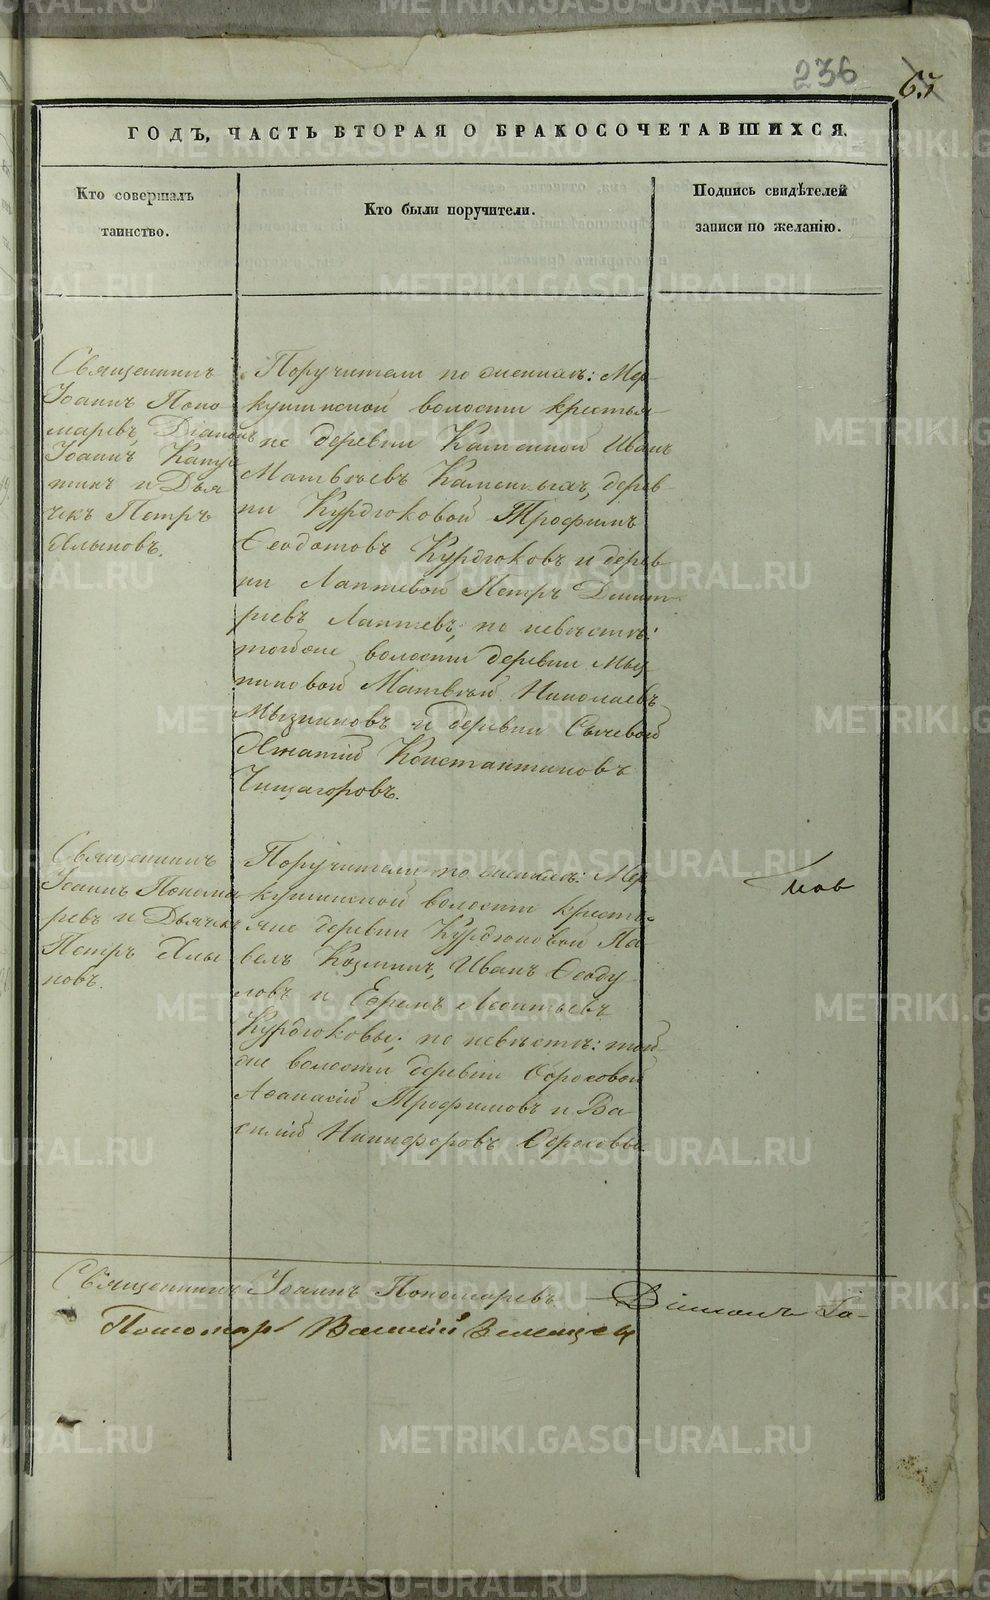 236
63
ГОДЪ, ЧАСТЬ ВТОРАЯ О БРАКОСОЧЕТАВШИХСЯ.
Кто совершалъ
таинство.
Кто были поручители.
Подпись свидѣтелей
записи по желанію.
Священникъ
Іоаннъ Поно
маревъ, Діаконъ
Іоаннъ Капу
тинъ и Дья
чекъ Петръ
Хлыновъ.
Поручители по женихѣ: Мер
кушинской волости крестья
не деревни Каменной Иванъ
Матвѣевъ Каменныхъ, дерев
ни Курдюковой Трофимъ
Ѳеодотовъ Курдюковъ и дерев
ни Лаптевой Петръ Димит
ріевъ Лаптевъ, по невѣстѣ:
тойже волости деревни Мыз
никовой Матвѣй Николаевъ
Мызниковъ и деревни Сычевой
Игнатій Константиновъ
Чищагоровъ.
Священникъ
Іоаннъ Понома
ревъ и Дьячекъ
Петръ Хлы
новъ.
Поручители по женихѣ: Мер
кушинской волости кресть
яне деревни Курдюковой Па
велъ Козминъ, Иванъ Ѳеоду
ловъ и Ефремъ Леонтьевъ
Курдюковы; по невѣстѣ: той
же волости деревни
Аѳанасій Трофимовъ и Ва
силій Никифоровъ
ковъ
Священникъ Іоаннъ Пономаревъ Діаконъ Іо-
Пономарь Василій
METRIKI.GASO-URAL.RU